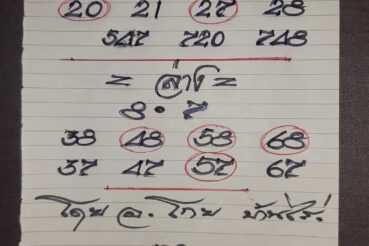 20 21 27 28
547 720 748
= ล่าง =
8 · 7
38 48 58 68
37 47 57 67
โดย อ. โกย บ้านไร่.